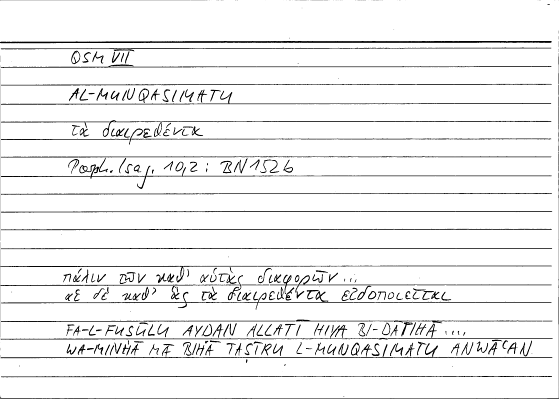 QSM VII
AL-MUNQASIMATU
τὰ διαιρεθέντα
Porph. Isag. 10,2 : BN152b
πάλιν τῶν καθ' αὑτὰς διαφορῶν ...
αἱ δὲ καθ' ἃς τὰ διαιρεθέντα εἰδοποιεῖται
FA-L-FUṢŪLU AYḌAN ALLATĪ HIYA BI-ḎĀTIHĀ ...,
WA-MINHĀ MĀ BIHĀ TAṢĪRU L-MUNQASIMATU ANWĀʿAN